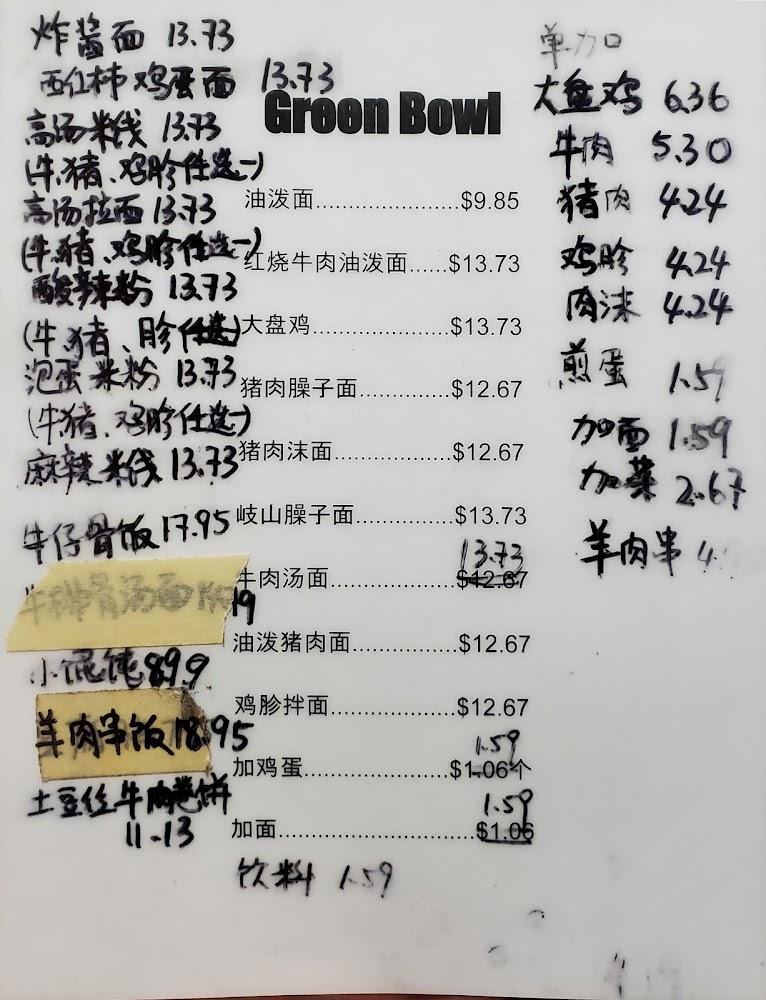 炸酱面 13.73
西红柿鸡蛋面 13.73
高汤米线 13.73
(牛.猪、鸡胗任选一)
高汤拉面 13.73
(牛.猪、鸡胗任选一)
酸辣粉 13.73
(牛.猪、胗任选)
泡蛋米粉 13.73
(牛.猪、鸡胗任选一)
麻辣米线 13.73
牛仔骨饭 17.95
牛排骨汤面
小馄饨 8.99
羊肉串饭 18.95
土豆丝牛肉卷饼
11.13
Green Bowl
油泼面......................$9.85
红烧牛肉油泼面......$13.73
大盘鸡......................$13.73
猪肉臊子面..............$12.67
猪肉沫面..................$12.67
岐山臊子面..............$13.73
13.73
牛肉汤面..................$12.67
油泼猪肉面..............$12.67
鸡胗拌面..................$12.67
1.59
加鸡蛋......................$1.06个
1.59
加面..........................$1.06
饮料 1.59
单加
大盘鸡 6.36
牛肉 5.30
猪肉 4.24
鸡胗 4.24
肉沫 4.24
煎蛋 1.59
加面 1.59
加菜 2.67
羊肉串 4.